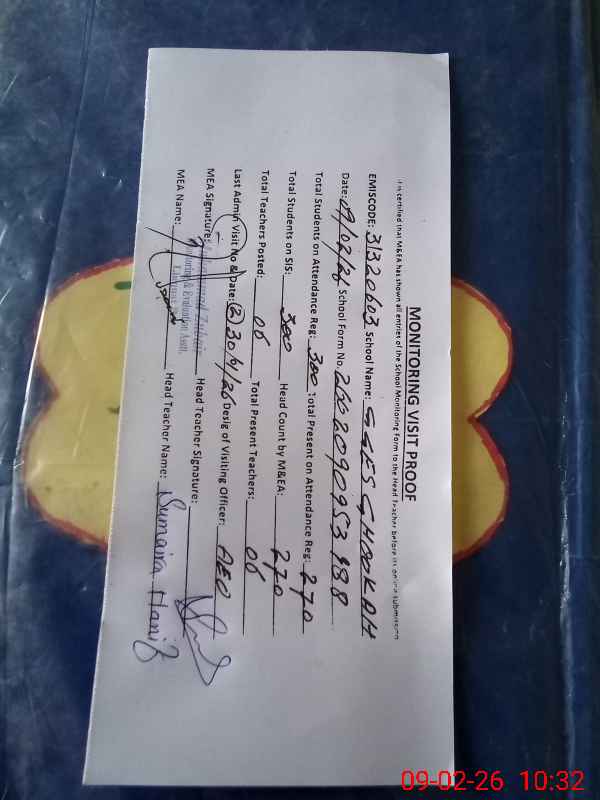 MONITORING VISIT PROOF
It is certified that M&EA has shown all entries of the School Monitoring Form to the Head Teacher before its online submission
EMISCODE: 31320603 School Name: GGES GHOOKAH
Date: 09/02/26 School Form No. 2602090953488
Total Students on Attendance Reg: 300 Total Present on Attendance Reg: 270
Total Students on SIS: 300 Head Count by M&EA: 270
Total Teachers Posted: 06 Total Present Teachers: 06
Last Admin Visit No & Date: (2) 30/1/26 Desig of Visiting Officer: AEO
MEA Signature: Head Teacher Signature:
Muhammad Zubair
Monitoring & Evaluation Asstt.
MEA Name: Head Teacher Name: Sumaira Hanif
09-02-26 10:32